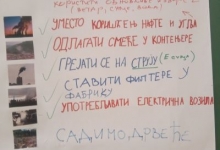 УМЕСТО КОРИШЋЕЊА НАФТЕ И УГЉА
ОДЛАГАТИ СМЕЋЕ У КОНТЕЈНЕРЕ
ГРЕЈАТИ СЕ НА СТРУЈУ
СТАВИТИ ФИЛТЕРЕ У
ФАБРИКУ
УПОТРЕБЉАВАТИ ЕЛЕКТРИЧНА ВОЗИЛА
САДИМО ДРВЕЋЕ